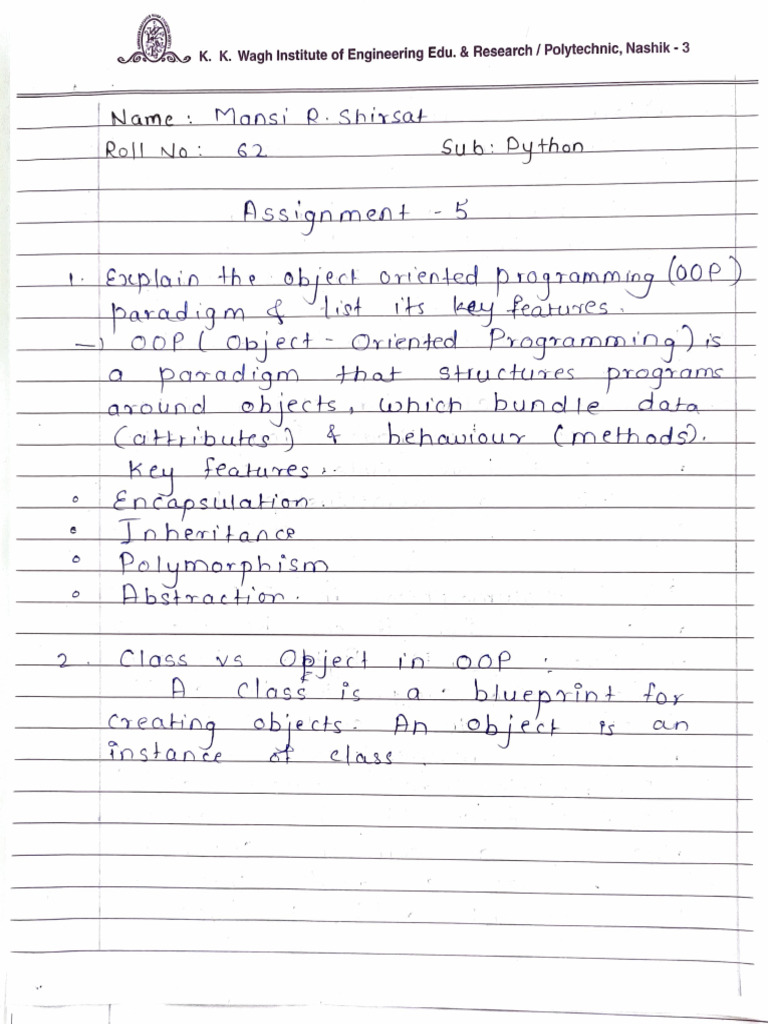 K. K. Wagh Institute of Engineering Edu. & Research / Polytechnic, Nashik - 3
Name : Mansi R. Shirsat
Roll No : 62 Sub: Python
Assignment - 5
1. Explain the object oriented programming (OOP)
paradigm & list its key features.
→ OOP ( Object - Oriented Programming) is
a paradigm that structures programs
around objects, which bundle data
(attributes) & behaviour (methods).
Key features :
Encapsulation.
Inheritance
Polymorphism
Abstraction.
2. Class vs Object in OOP :
A class is a blueprint for
creating objects. An object is an
instance of class.